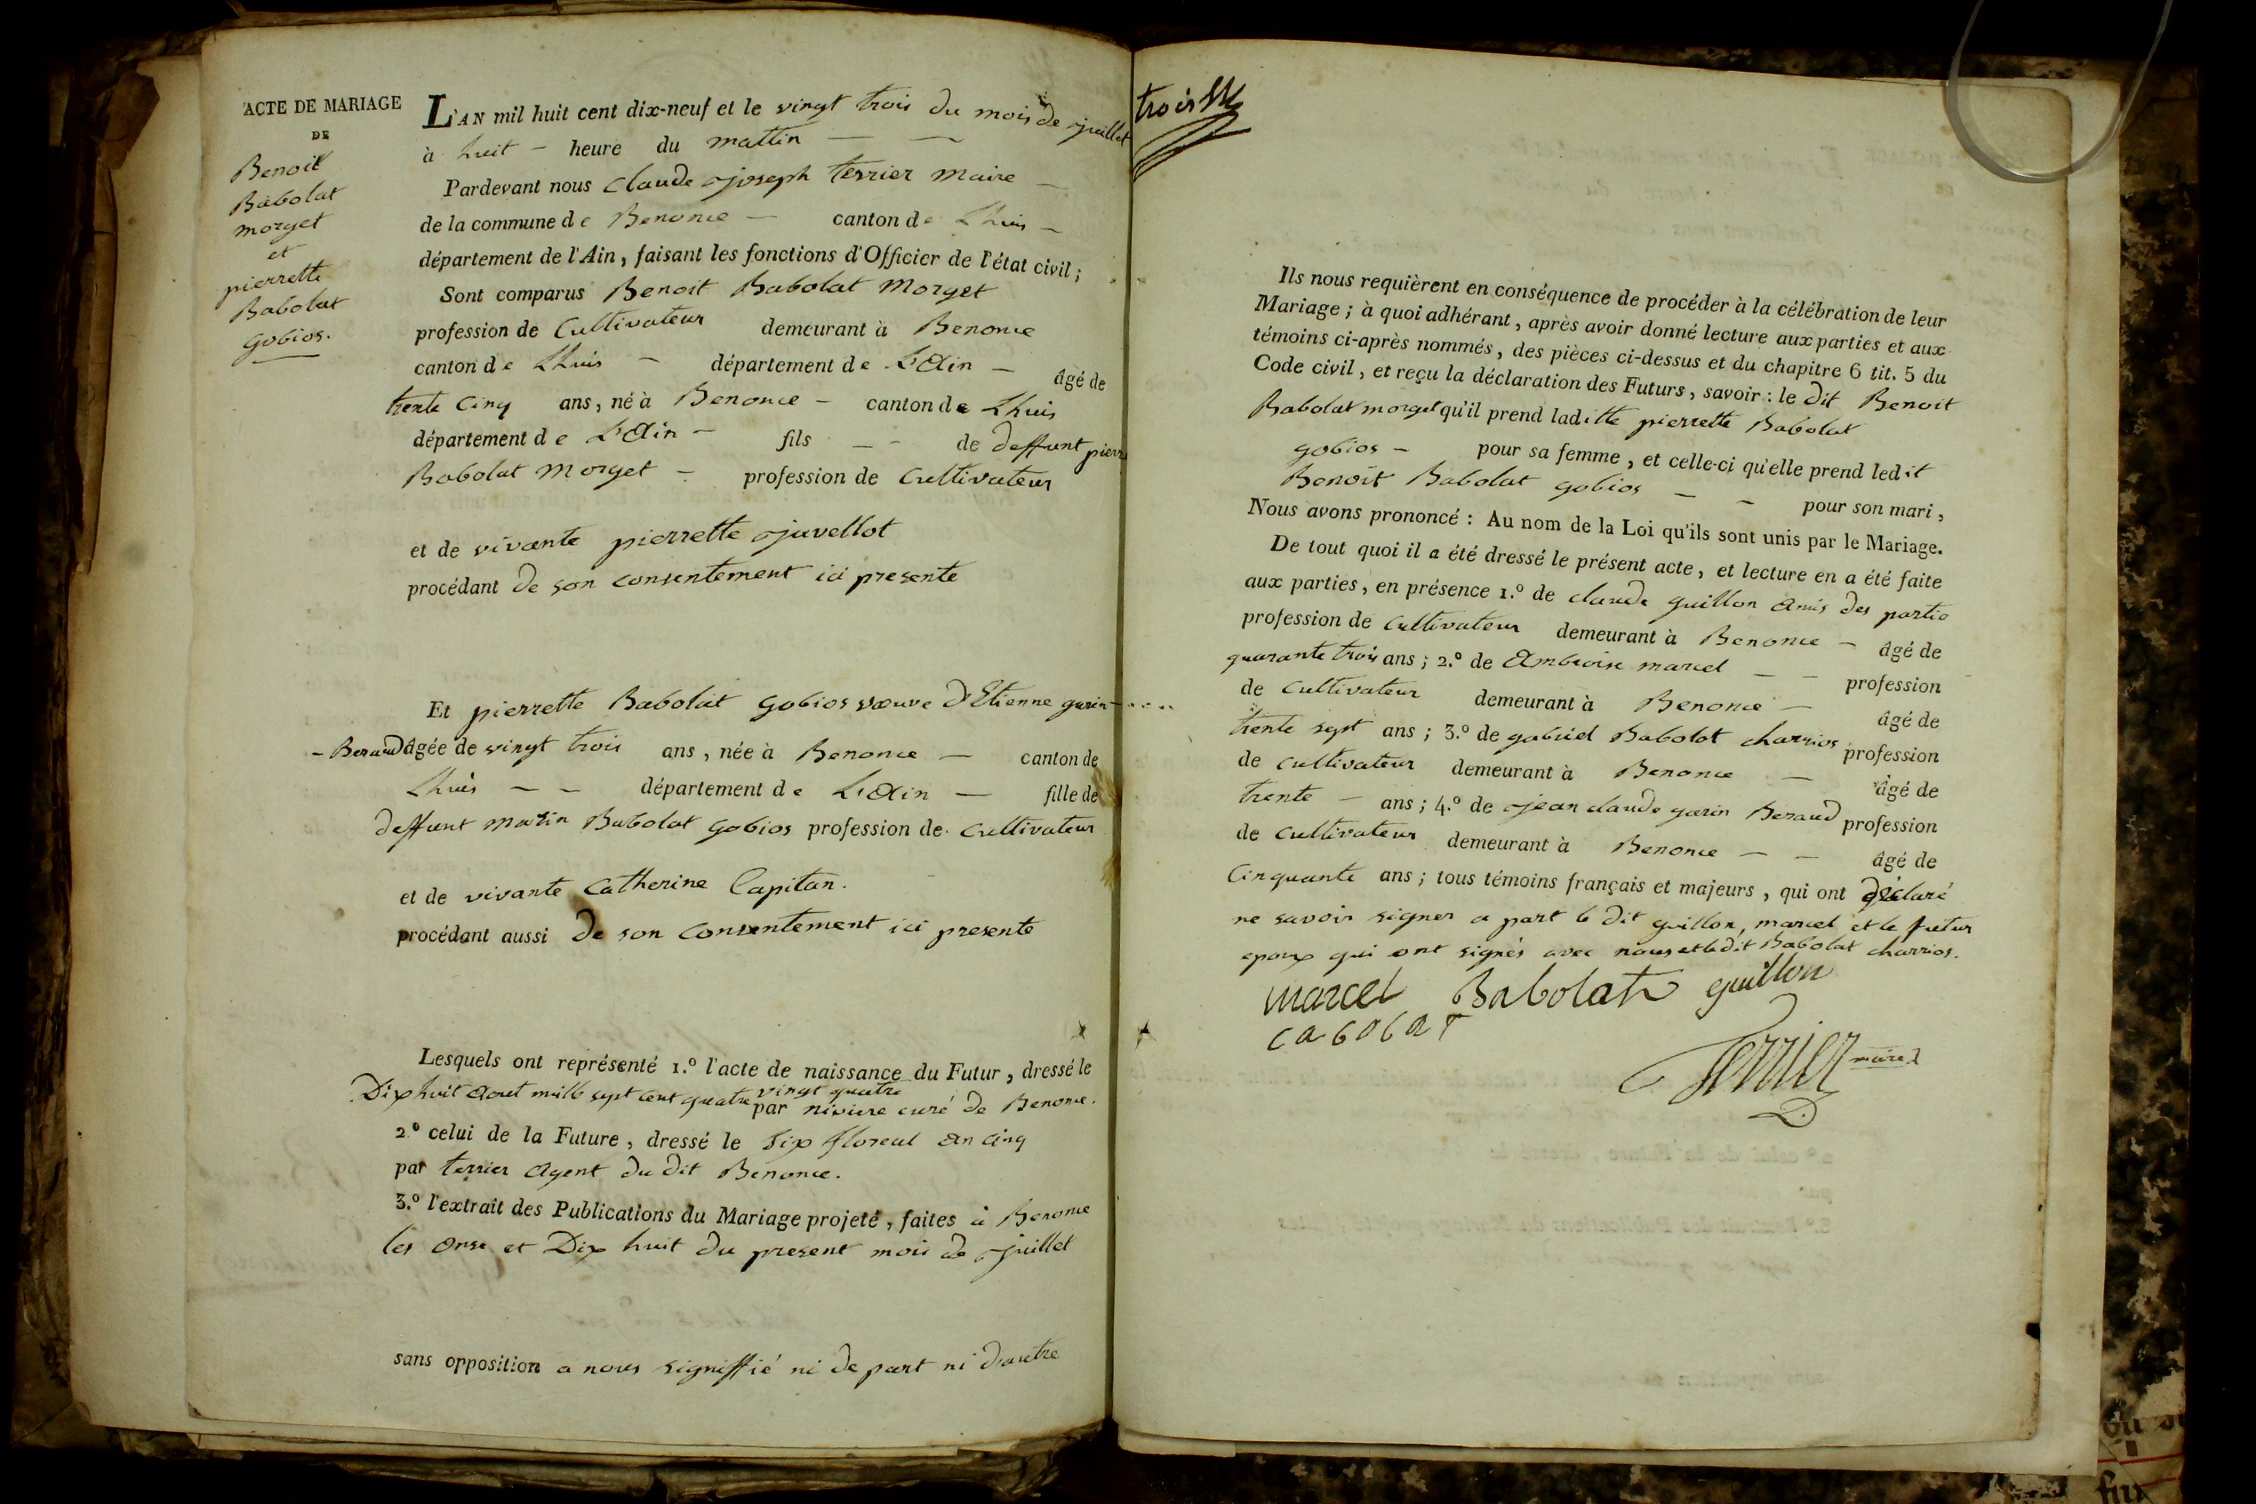 ACTE DE MARIAGE
DE
Benoit
Babolat
morget
et
pierrette
Babolat
gobios.
L'AN mil huit cent dix-neuf et le vingt trois du mois de juillet
à huit - heure du mattin
Pardevant nous Claude joseph terrier Maire
de la commune de Benonce canton de Lhuis
département de l'Ain, faisant les fonctions d'Officier de l'état civil;
Sont comparus Benoit Babolat Morget
profession de Cultivateur demeurant à Benonce
canton de Lhuis département de L'Ain âgé de
trente cinq ans, né à Benonce canton de Lhuis
département de L'Ain fils de deffunt pierre
Babolat Morget profession de Cultivateur
et de vivante pierrette juvellot
procédant de son consentement ici presente
Et pierrette Babolat gobios væuve d'Etienne garin
- Beraud âgée de vingt trois ans, née à Benonce canton de
Lhuis département de L'Ain fille de
deffunt marin Babolat gobios profession de cultivateur
et de vivante Catherine Capitan.
procédant aussi de son consentement ici presente
Lesquels ont représenté 1.º l'acte de naissance du Futur, dressé le
Dix huit aout mille sept cent quatre vingt quatre
par niviere curé de Benonce.
2.º celui de la Future, dressé le six floreal an cinq
par terrier agent du dit Benonce.
3.º l'extrait des Publications du Mariage projeté, faites à Benonce
les onse et Dix huit du present mois de juillet
sans opposition a nous signiffié ni de part ni d'autre
trois
Ils nous requièrent en conséquence de procéder à la célébration de leur
Mariage; à quoi adhérant, après avoir donné lecture aux parties et aux
témoins ci-après nommés, des pièces ci-dessus et du chapitre 6 tit. 5 du
Code civil, et reçu la déclaration des Futurs, savoir: le dit Benoit
Babolat morget qu'il prend laditte pierrette Babolat
gobios - pour sa femme, et celle-ci qu'elle prend ledit
Benoit Babolat gobios pour son mari,
Nous avons prononcé: Au nom de la Loi qu'ils sont unis par le Mariage.
De tout quoi il a été dressé le présent acte, et lecture en a été faite
aux parties, en présence 1.º de claude guillon amis des partie
profession de cultivateur demeurant à Benonce âgé de
quarante trois ans; 2.º de Ambroise marcel profession
de cultivateur demeurant à Benonce âgé de
trente sept ans; 3.º de gabriel Babolat charrios profession
de cultivateur demeurant à Benonce âgé de
trente ans; 4.º de jean claude garin Beraud profession
de cultivateur demeurant à Benonce âgé de
Cinquante ans; tous témoins français et majeurs, qui ont déclaré
ne savoir signer a part le dit guillon, marcel et le futur
epoux qui ont signés avec nous et le dit Babolat charrios.
marcel Babolat guillon
Terrier maire